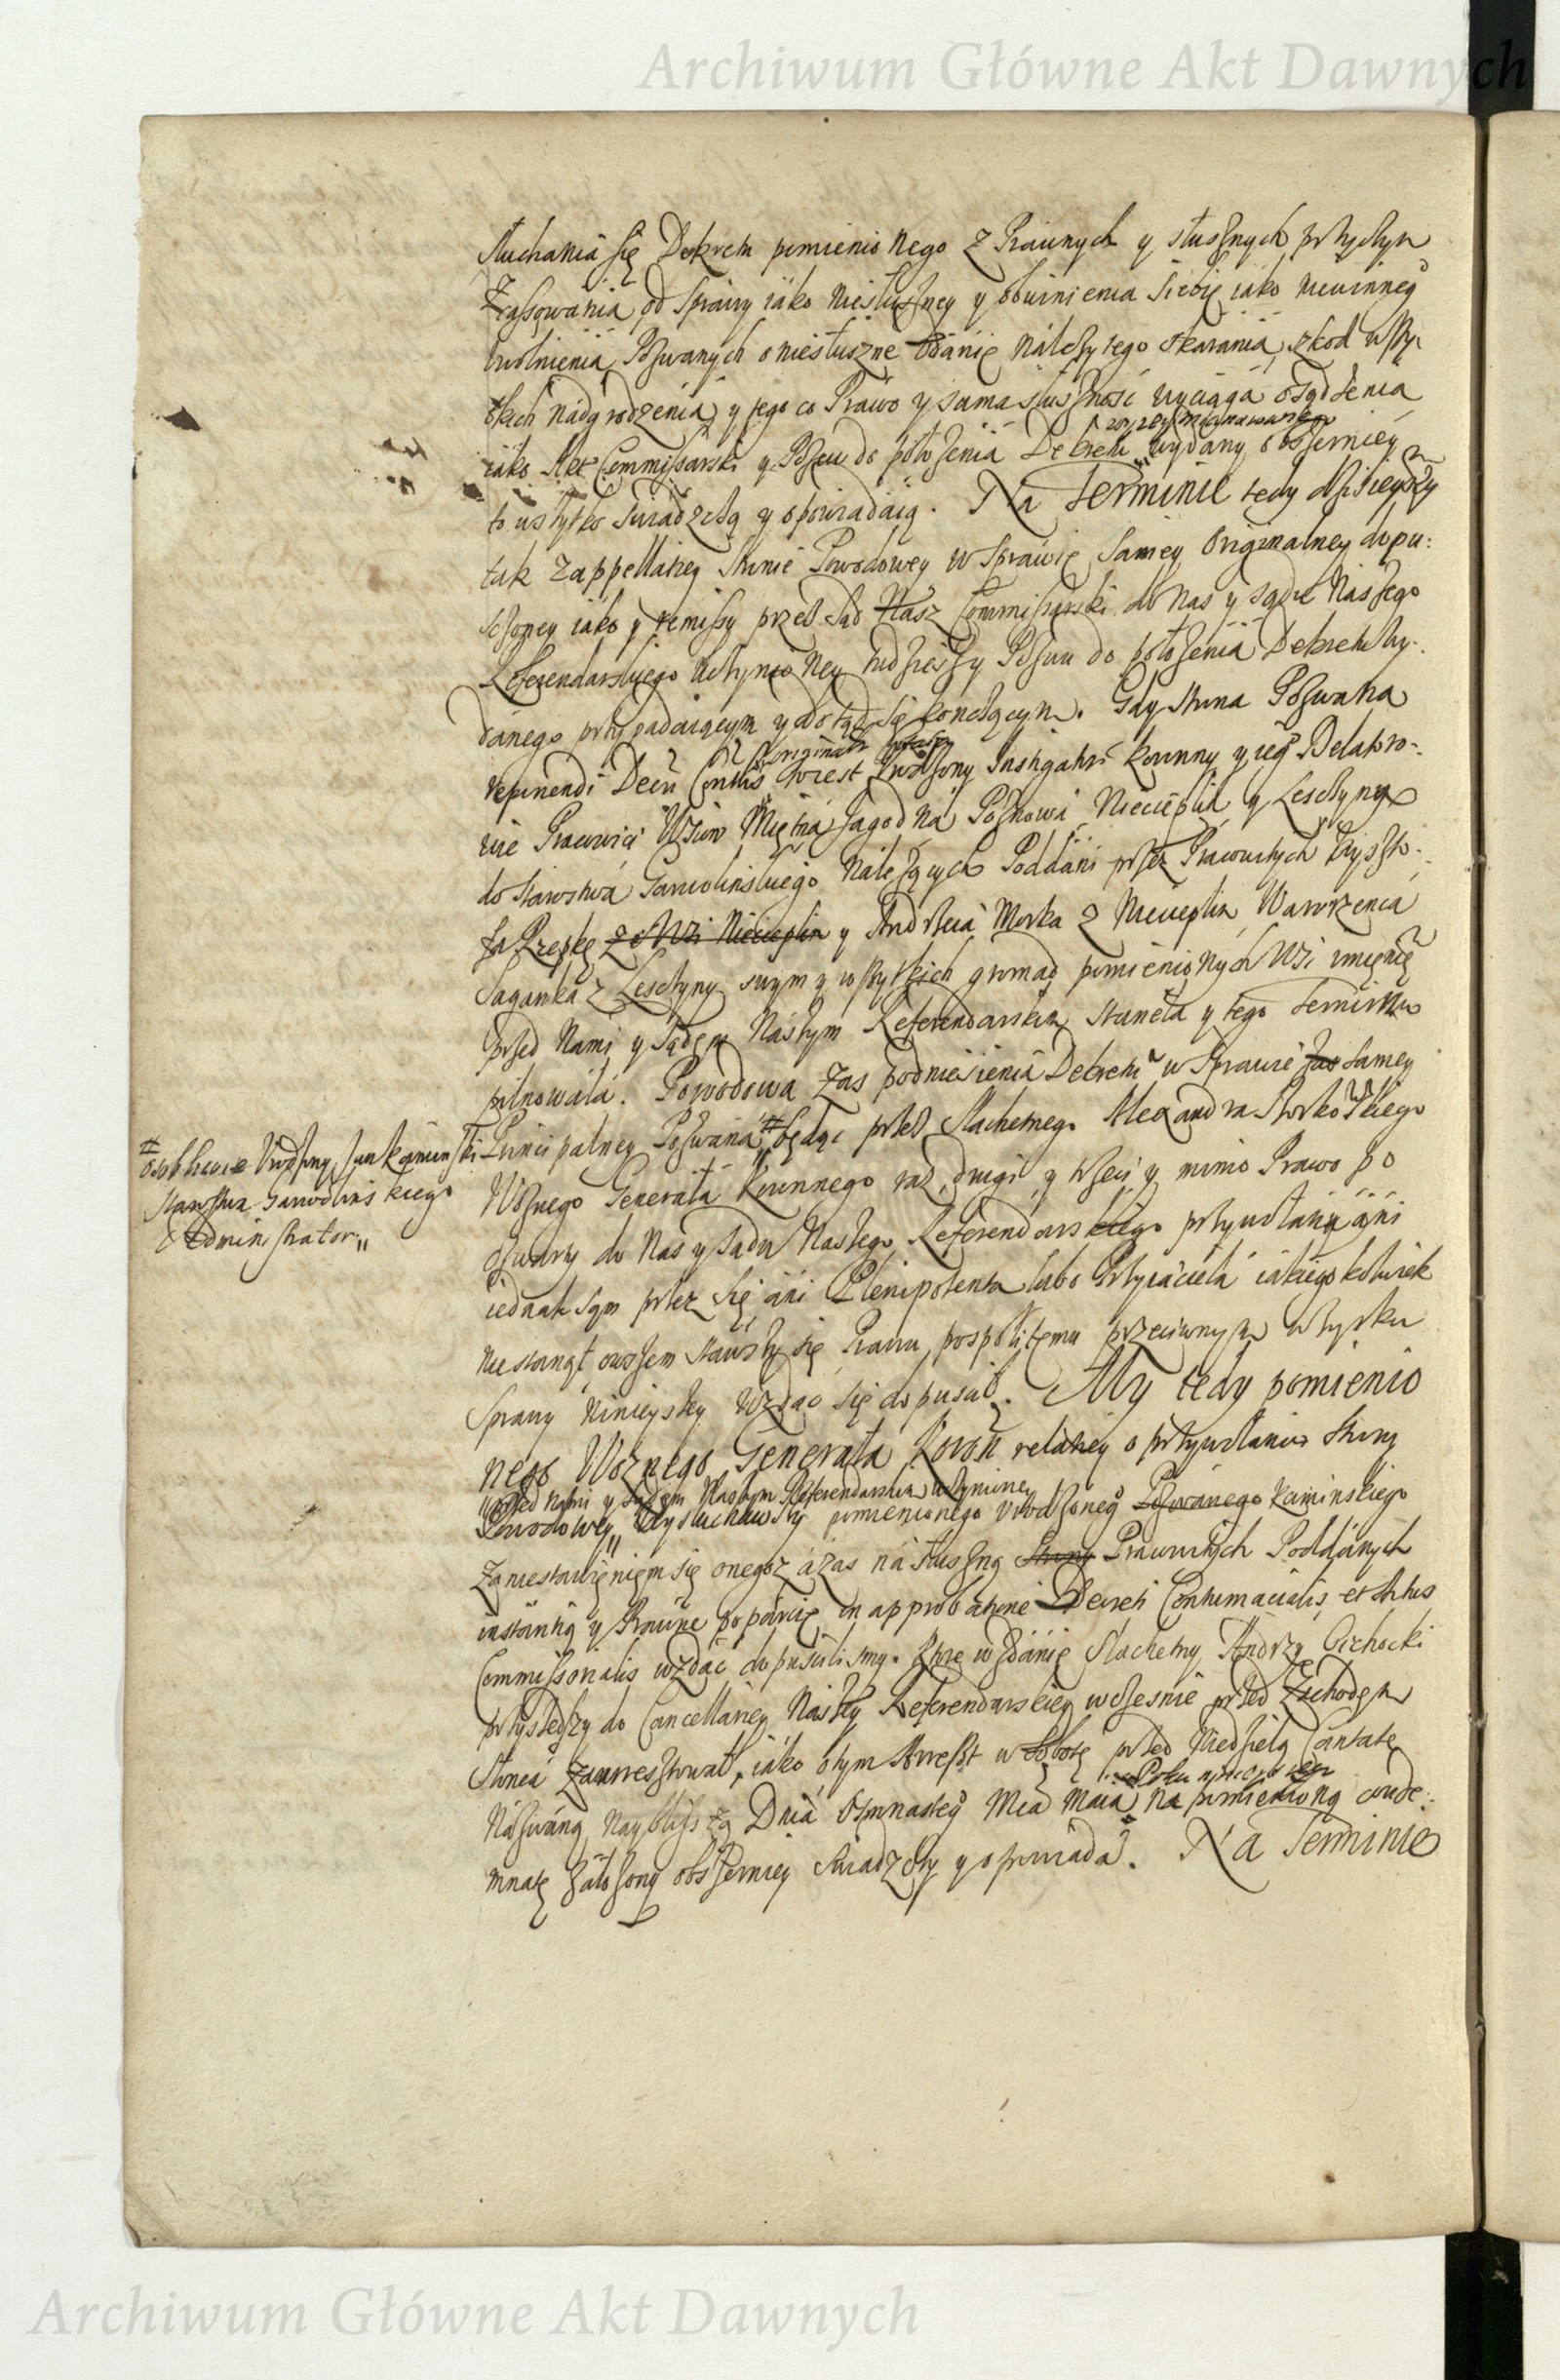 Archiwum Główne Akt Dawnych
słuchania się Dekretu pomienionego z Prawnych y słusznych przyczyn
Zkassowania, od sprawy iako niesłuszney y obwinienia siebie iako niewinneg°
uwolnienia, Pozwanych o niesłuszne udanie należytego skarania, szkod wszy-
stkich nadgrodzenia, y tego co Prawo y sama słuszność wyciąga osądzenia
iako Akt Commissarski y Pozew do położenia Dekretu wydany obszerniey
to wszytko świadczą y opowiadaią. Na Terminie tedy dzisieyszy
tak z appellatiey stronie Powodowey w sprawie samey originalney dopu:
szczoney iako y remissy przez sąd Nasz Commissarski do Nas y sądu Naszego
Referendarskiego uczynioney tudzieszy Pozwu do położenia Dekretu wy-
danego przypadaiącym y dotąd się konczącym. Gdy strona Pozwana
reponendi Decti Contus to iest Urodzony Instigator Koronny y ieg° Delatoro-
wie Pracowici Wsiow Miętna Jagodna Poznowa Niecieplin y Lesczyny
do starostwa Garwolinskiego należących Poddani przez Pracowitych Kryszto-
fa Rzepkę ze Wsi Niecieplin y Andrzeia Morka z Niecieplin, Wawrzenca
Saganka z Lesczyny swym y wszytkich gromad pomienionych Wsi imieniē
przed Nami y Sądem Naszym Referendarskim staneła y tego Terminu
pilnowała. Powodowa zas podniesienia Dekretu w sprawie zas samey
Principalney Pozwana # będąc przez Slachetnego Alexandra
# osobliwie Urodzony Jan Kaminski
starostwa Garwolinskiego
Administrator
Woznego Generała Koronnego raz, drugi, y trzeci y mimo Prawo po
czwarty do Nas y Sądu Naszego Referendarskiego przywołany ani
iednak sam przez się ani Plenipotenta lubo Przyiaciela iakiegokolwiek
nie stanął owszem stawszy się Prawu pospolitemu przeciwnym w zysku
sprawy ninieyszey wzdać się dopuscił. My tedy pomienio
nego Woznego Generała Koroñ relatiey o przywołaniu strony
przed Nami y Sądem Naszym Referendarskim uczynioney
Powodowey wysłuchawszy pomienionego Urodzoneg° Pozwanego Kaminskiego
za niestawieniem się onegoz a zas na słuszną strony Pracowitych Poddanych
instantią y Prawne poparcie in approbatione Decreti Contumacialis, et Actus
Commissorialis wzdać dopuscilismy. Ktore wzdanie Slachetny Andrzy Cichocki
przyszedszy do Cancellariey Naszey Referendarskiey wczesnie przed Zachodem
słonca zaaresztował, iako o tym Arreszt w sobotę przed Niedzielą Cantate
nazwaną naybliższą Dnia osmnasteg° Mca Maia na pomienioną conde:
mnatę założony obszerniey świadczy y opowiada. Na Terminie
Archiwum Główne Akt Dawnych